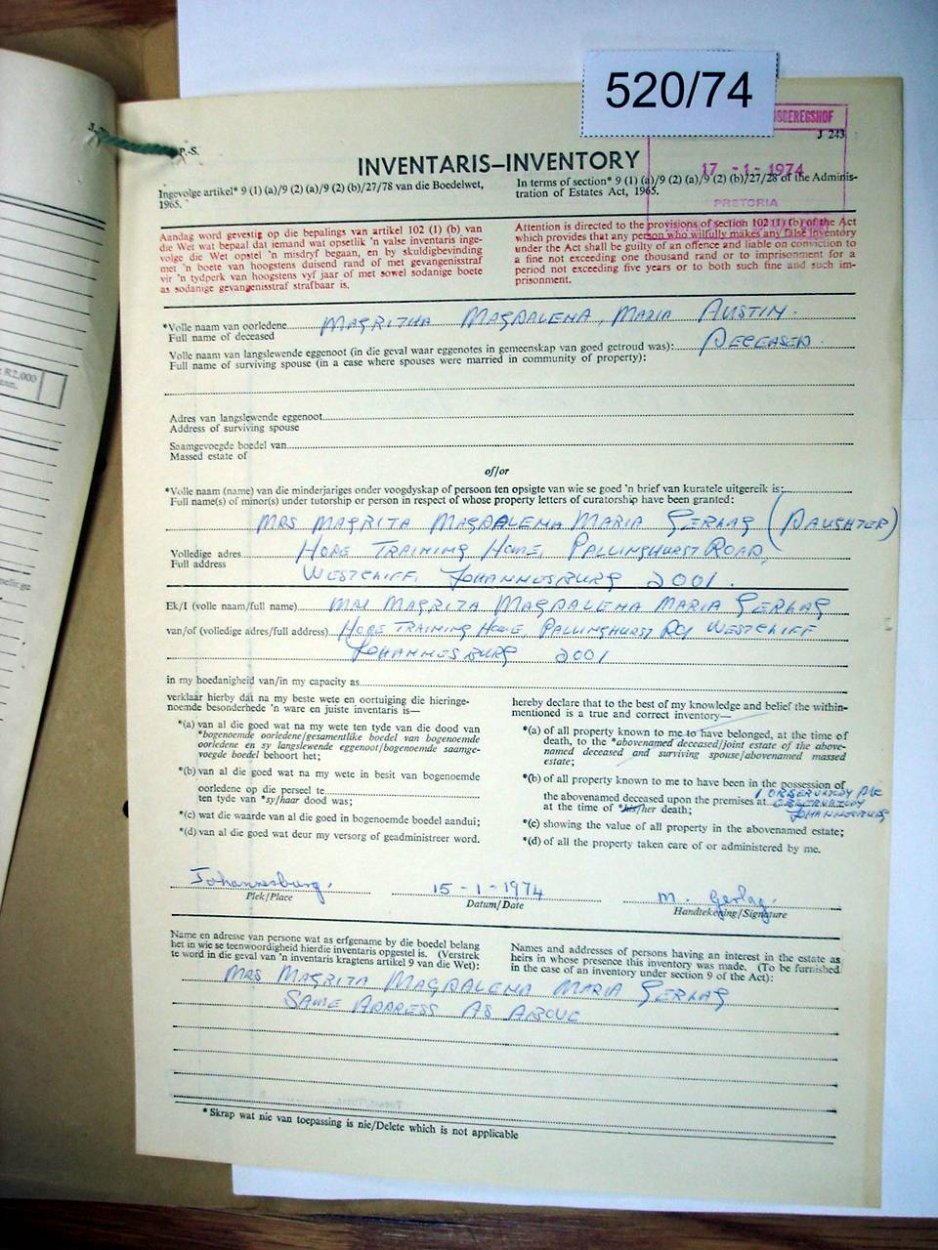 520/74
J 243
17 -1- 1974
PRETORIA
P.-S.
INVENTARIS–INVENTORY
Ingevolge artikel* 9 (1) (a)/9 (2) (a)/9 (2) (b)/27/78 van die Boedelwet,
1965.
In terms of section* 9 (1) (a)/9 (2) (a)/9 (2) (b)/27/28 of the Adminis-
tration of Estates Act, 1965.
Aandag word gevestig op die bepalings van artikel 102 (1) (b) van
die Wet wat bepaal dat iemand wat opsetlik 'n valse inventaris inge-
volge die Wet opstel 'n misdryf begaan, en by skuldigbevinding
met 'n boete van hoogstens duisend rand of met gevangenisstraf
vir 'n tydperk van hoogstens vyf jaar of met sowel sodanige boete
as sodanige gevangenisstraf strafbaar is.
Attention is directed to the provisions of section 102 (1) (b) of the Act
which provides that any person who wilfully makes any false inventory
under the Act shall be guilty of an offence and liable on conviction to
a fine not exceeding one thousand rand or to imprisonment for a
period not exceeding five years or to both such fine and such im-
prisonment.
*Volle naam van oorledene MAGRITHA MAGDALENA, MARIA AUSTIN.
Full name of deceased
Volle naam van langslewende eggenoot (in die geval waar eggenotes in gemeenskap van goed getroud was): DECEASED.
Full name of surviving spouse (in a case where spouses were married in community of property):
Adres van langslewende eggenoot
Address of surviving spouse
Saamgevoegde boedel van
Massed estate of
of/or
*Volle naam (name) van die minderjariges onder voogdyskap of persoon ten opsigte van wie se goed 'n brief van kuratele uitgereik is:
Full name(s) of minor(s) under tutorship or person in respect of whose property letters of curatorship have been granted:
MRS MAGRITA MAGDALENA MARIA GERLAG (DAUGHTER)
Volledige adres HOPE TRAINING HOME, PALLINGHURST ROAD,
Full address
WESTCLIFF, JOHANNESBURG 2001.
Ek/I (volle naam/full name) MRS MAGRITA MAGDALENA MARIA GERLAG
van/of (volledige adres/full address) HOPE TRAINING HOME, PALLINGHURST RD, WESTCLIFF
JOHANNESBURG 2001
in my hoedanigheid van/in my capacity as
verklaar hierby dat na my beste wete en oortuiging die hieringe-
noemde besonderhede 'n ware en juiste inventaris is—
*(a) van al die goed wat na my wete ten tyde van die dood van
*bogenoemde oorledene/gesamentlike boedel van bogenoemde
oorledene en sy langslewende eggenoot/bogenoemde saamge-
voegde boedel behoort het;
*(b) van al die goed wat na my wete in besit van bogenoemde
oorledene op die perseel te
ten tyde van *sy/haar dood was;
*(c) wat die waarde van al die goed in bogenoemde boedel aandui;
*(d) van al die goed wat deur my versorg of geadministreer word.
hereby declare that to the best of my knowledge and belief the within-
mentioned is a true and correct inventory—
*(a) of all property known to me to have belonged, at the time of
death, to the *abovenamed deceased/joint estate of the above-
named deceased and surviving spouse/abovenamed massed
estate;
*(b) of all property known to me to have been in the possession of
the abovenamed deceased upon the premises at 1 OBSERVATORY AVE
OBSERVATORY
at the time of *his/her death; JOHANNESBURG
*(c) showing the value of all property in the abovenamed estate;
*(d) of all the property taken care of or administered by me.
Johannesburg. 15-1-1974 M. Gerlag.
Plek/Place Datum/Date Handtekening/Signature
Name en adresse van persone wat as erfgename by die boedel belang
het in wie se teenwoordigheid hierdie inventaris opgestel is. (Verstrek
te word in die geval van 'n inventaris kragtens artikel 9 van die Wet):
Names and addresses of persons having an interest in the estate as
heirs in whose presence this inventory was made. (To be furnished
in the case of an inventory under section 9 of the Act):
MRS MAGRITA MAGDALENA MARIA GERLAG
SAME ADDRESS AS ABOVE
* Skrap wat nie van toepassing is nie/Delete which is not applicable
R2,000